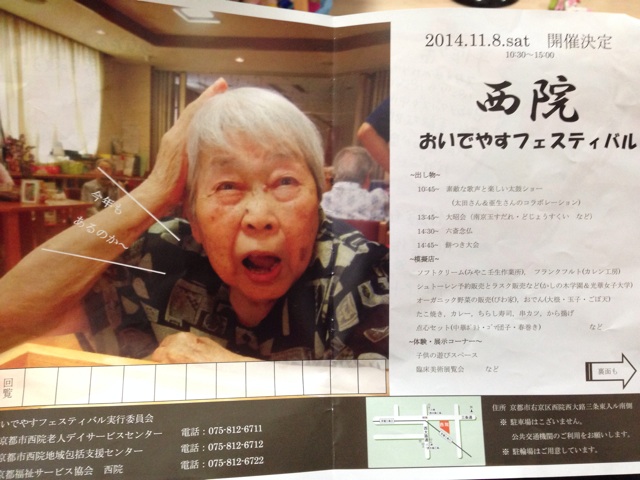 2014.11.8.sat　開催決定
10:30～15:00
西院
おいでやすフェスティバル
~出し物~
10:45~　素敵な歌声と楽しい太鼓ショー
13:45~　大昭会（南京玉すだれ・どじょうすくい　など）
14:30~　六斎念仏
14:45~　餅つき大会
~模擬店~
ソフトクリーム(みやこ壬生作業所)、　フランクフルト(カレン工房)
シュトーレン予約販売とラスク販売など(かしの木学園＆光華女子大学)
オーガニック野菜の販売(びわ家)、　おでん(大根・玉子・ごぼ天)
たこ焼き、カレー、ちらし寿司、串カツ、から揚げ
など
~体験・展示コーナー~
子供の遊びスペース
臨床美術展覧会　　など
裏面も
今年も
あるのか～
回覧
いでやすフェスティバル実行委員会
京都市西院老人デイサービスセンター　電話：075-812-6711
京都市西院地域包括支援センター　電話：075-812-6712
京都福祉サービス協会　西院　電話：075-812-6722
住所　京都市右京区西院西大路三条東入ル南側
※　駐車場はございません。
公共交通機関のご利用をお願いします。
※　駐輪場はご用意しています。